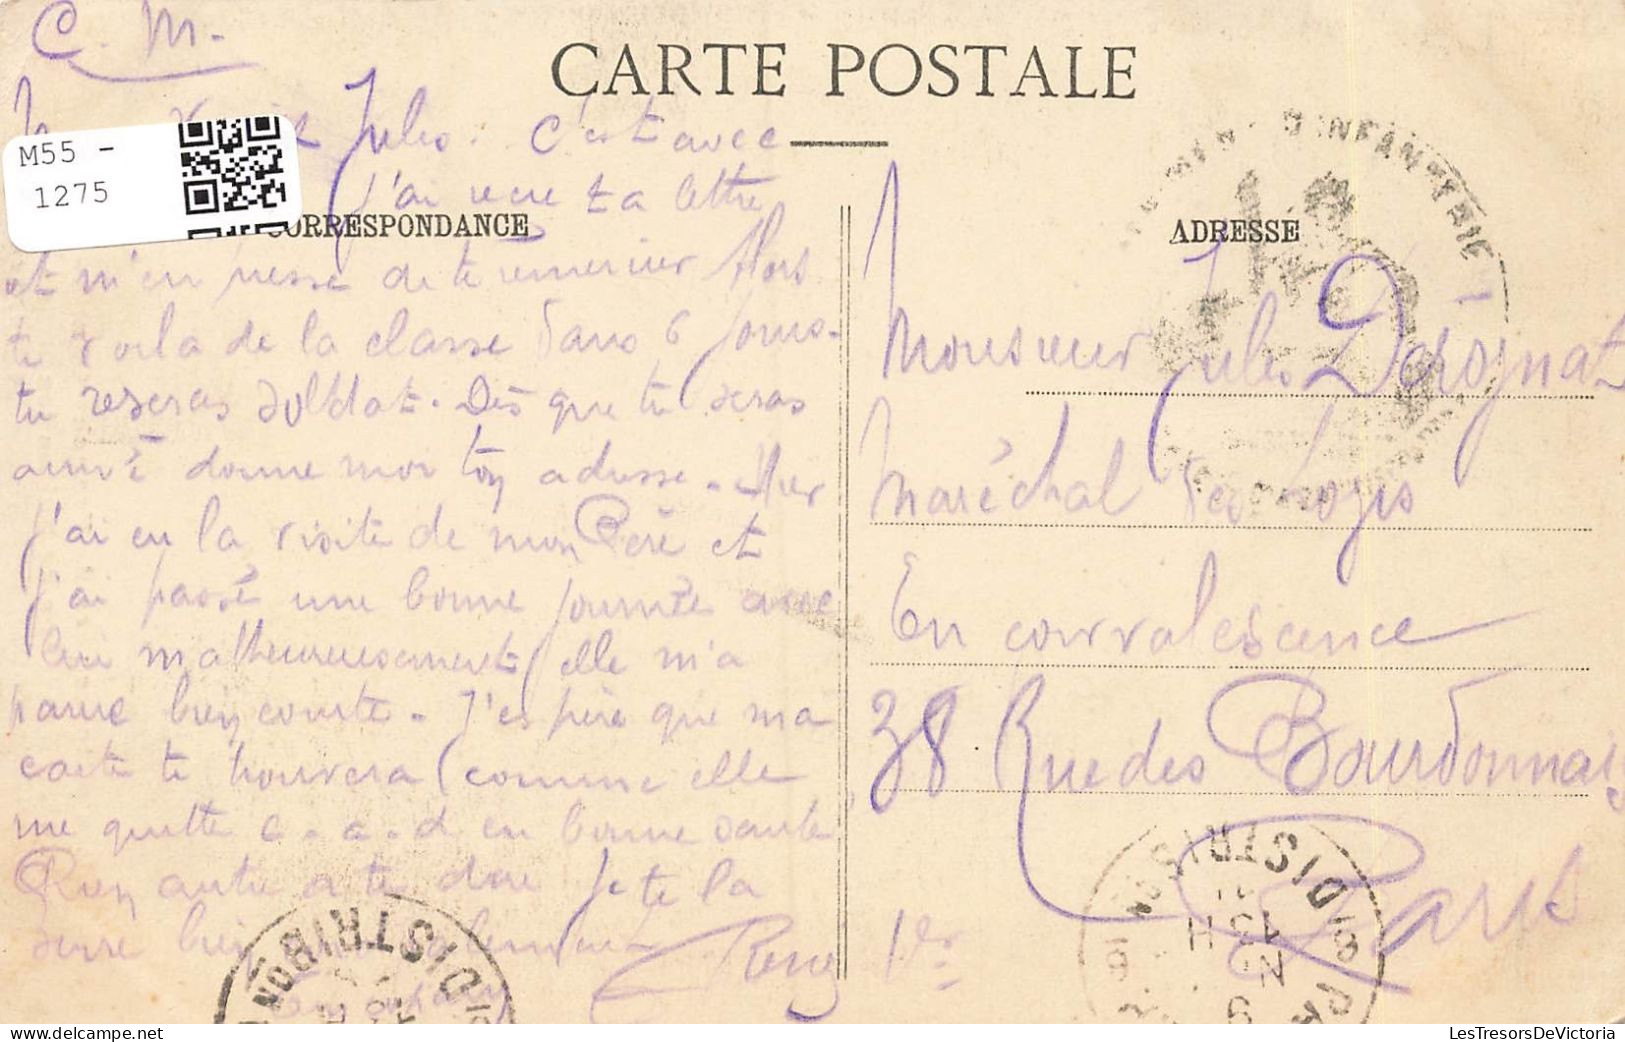 C. M.
CARTE POSTALE
M55 -
1275
Jules. C'est avec
j'ai recu ta lettre
CORRESPONDANCE
et m'en presse de te remercier Alors
te voila de la classe dans 6 jours.
tu seras soldat. Dès que tu seras
arrivé donne moi ton adresse. Hier
j'ai eu la visite de mon Père et
j'ai passé une bonne journée avec
lui malheureusement elle m'a
parue bien courte. J'espère que ma
carte te trouvera (comme elle
me quitte c.-a-d en bonne santé
Rien autre a te dire Je te la
serre bien
René
D'INFANTERIE
ADRESSE
Monsieur Jules
Maréchal des Logis
En convalescence
38 Rue des Bourdonnais
Paris
1er
DISTRIBON
DISTRIBON
13H
LesTresorsDeVictoria.com